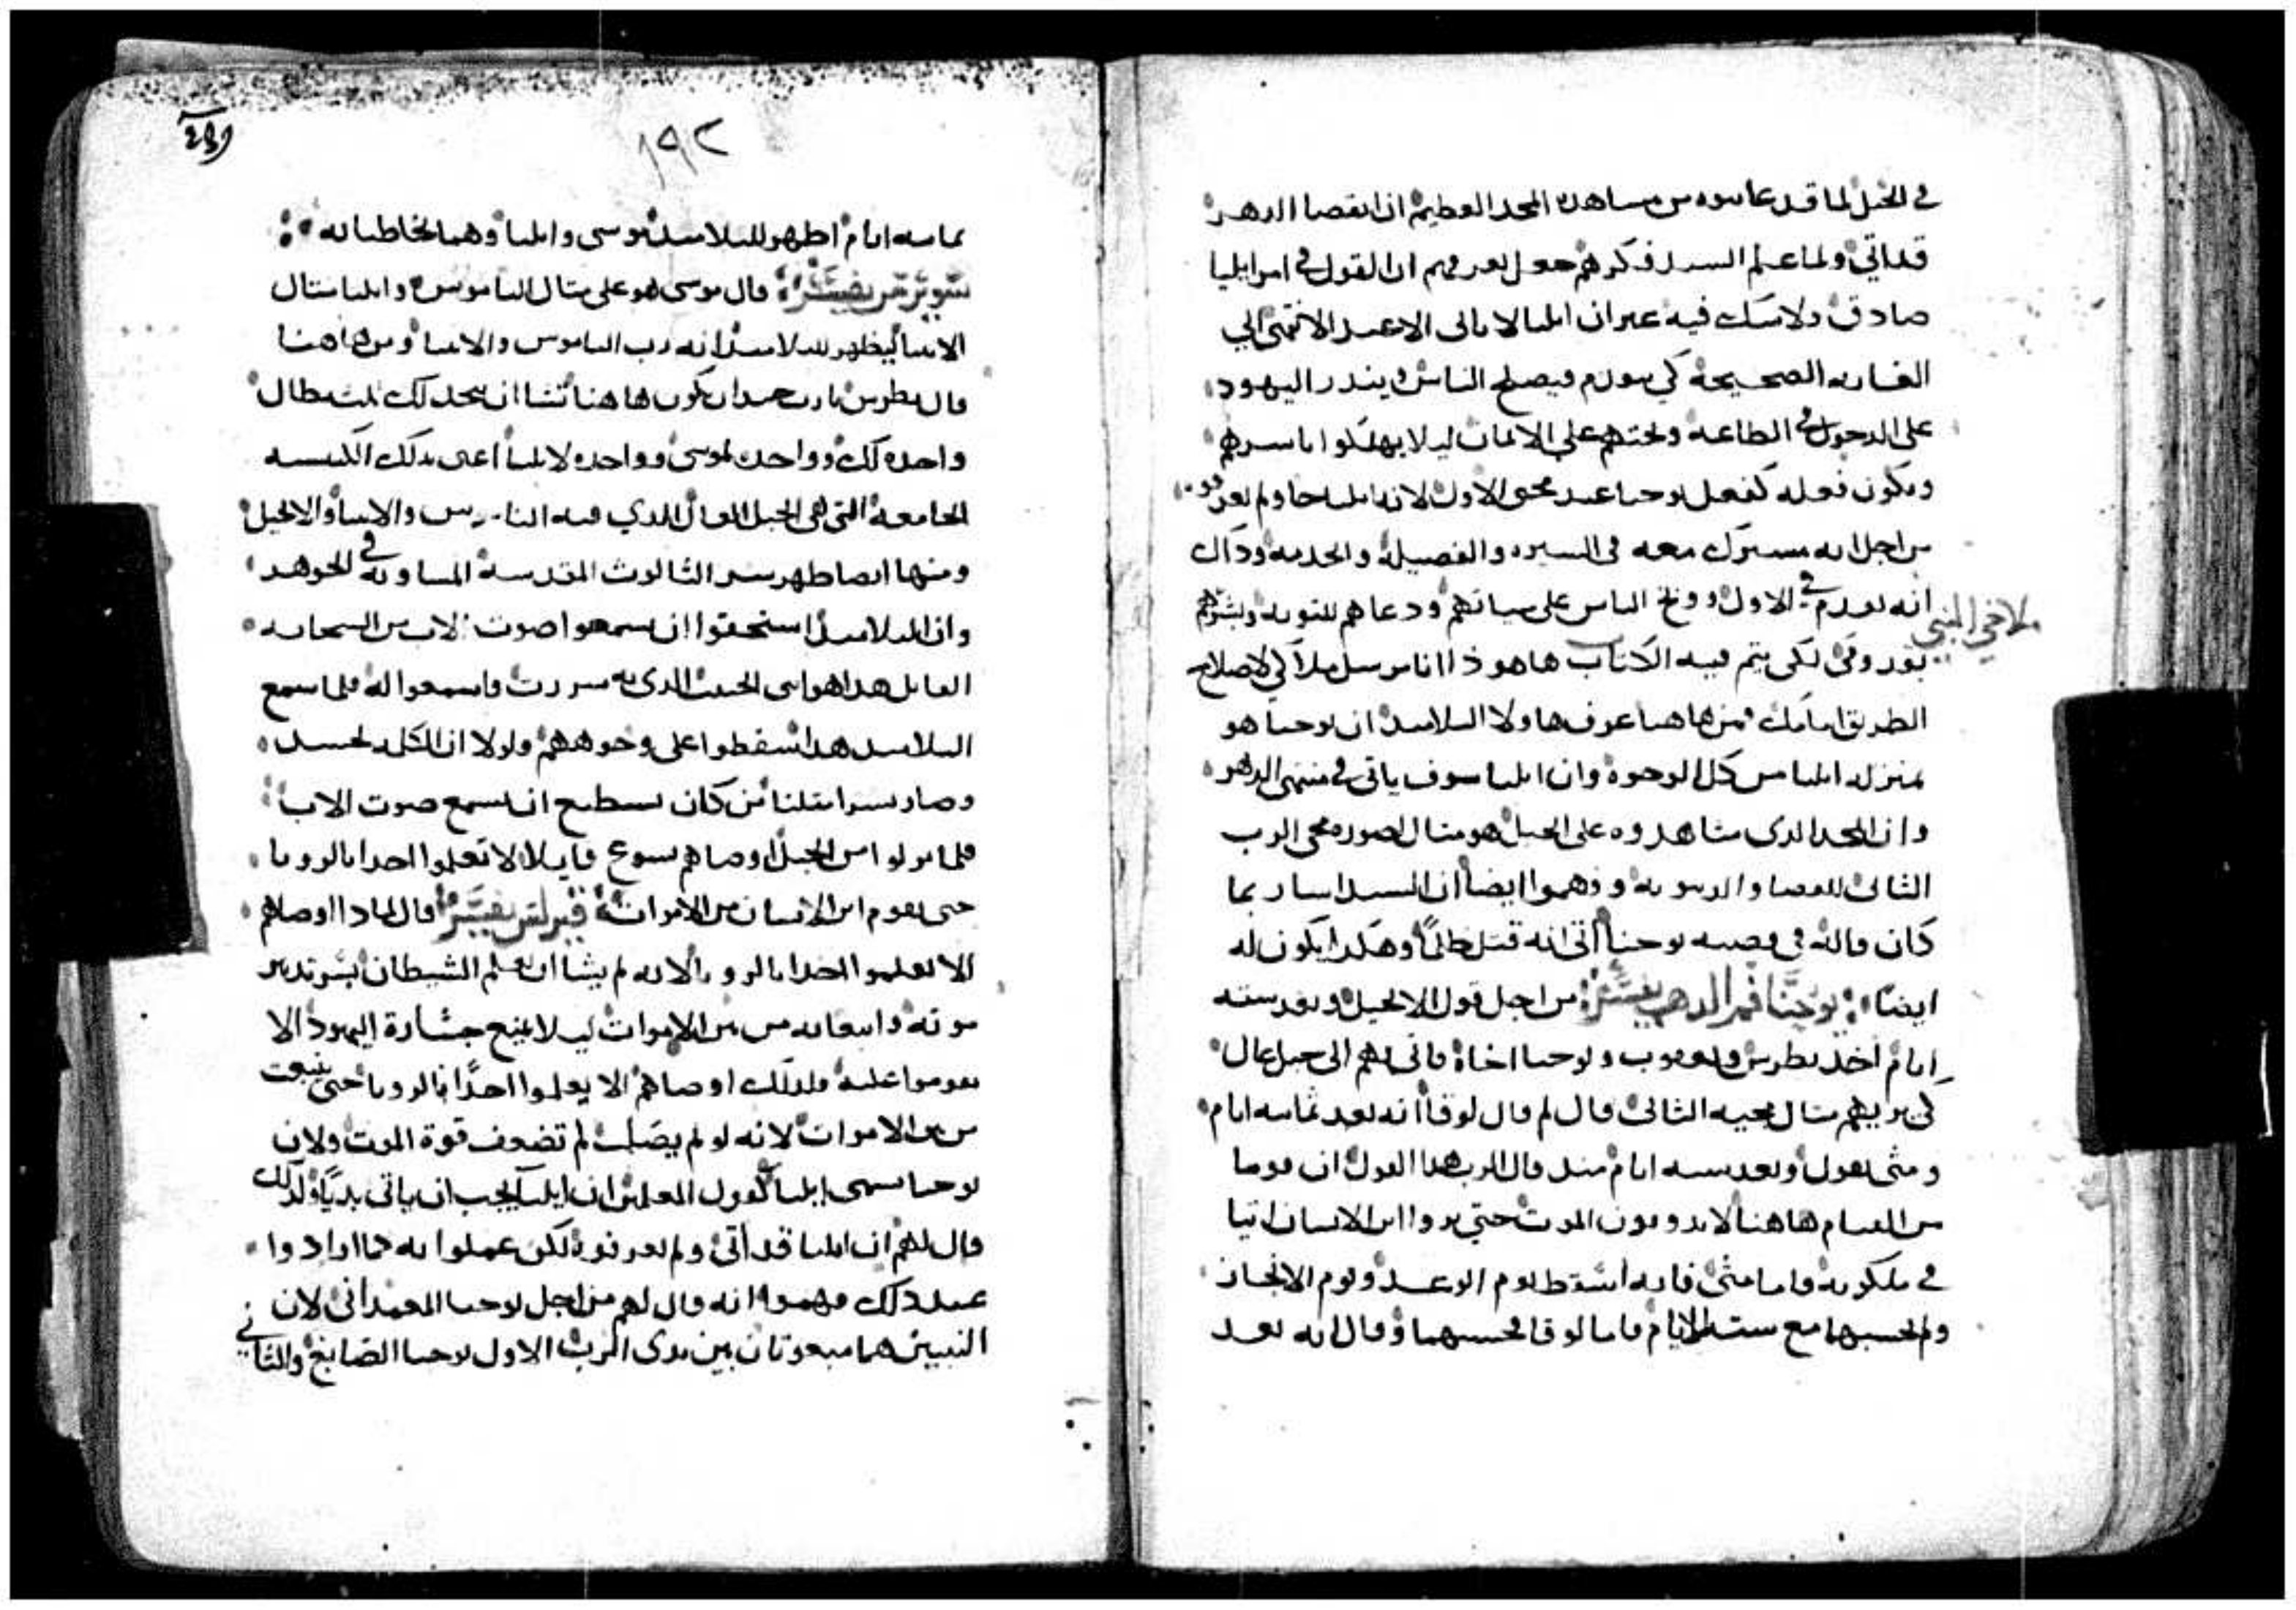 في الجبل لما قد عاينوه من مشاهدة المجد العظيم ان انقضا الدهر
قد اتي ولما علم السيد فكرهم جعل يعرفهم ان القول في امر ايليا
صادق ولا شك فيه غير ان ايليا لا ياتي الا عند
الصحيحة كي الناس وينذر اليهود
على الدخول في الطاعة ويحثهم على الايمان ليلا يهلكوا باسرهم
ويكون فعله كفعل يوحنا عند مجي الاول لانه ايليا جا ولم يعرفوه
من اجل انه مشترك معه في السيره والفضيلة والخدمة وذاك
انه تقدم في الاول ووبخ الناس على سياتهم ودعاهم للتوبة وبشرهم
ملاخي النبي
لكي يتم فيه الكتاب ها هو ذا انا مرسل ملاكي لاصلاح
الطريق امامك من هاهنا عرف هاولا التلاميذ ان يوحنا هو
بمنزلة ايليا من كل الوجوه وان ايليا سوف ياتي في منتهى الدهر
وان المجد الذى شاهدوه على الجبل هو مثال لصورة مجى الرب
الثانى للقضا والدينونة وفهموا ايضا ان السيد اشار بما
كان قاله في قصة يوحنا انه قتل ظلمًا وهكذا يكون له
ايضا يوحنا فم الدهب يفسر من اجل قول الانجيل وبعد ستة
ايام اخذ بطرس ويعقوب ويوحنا اخاه واتى بهم الى جبل عال
كي يريهم مثال مجيه الثانى قال لم قال لوقا انه بعد ثمانية ايام
ومتى يقول وبعد ستة ايام منذ قال الرب هذا القول ان قوما
من القيام هاهنا لا يذوقون الموت حتي يروا ابن الانسان اتيا
في ملكوته فاما متى فانه اسقط يوم الوعد ويوم الانجاز
ولم يحسبهما مع ستة الايام فاما لوقا فحسبهما وقال انه بعد
١٩٢
ثمانية ايام اظهر للتلاميذ موسى وايليا وهما يخاطبانه
يفسر قال موسى هو على مثال الناموس وايليا مثال
الانبيا ليظهر للتلاميذ انه رب الناموس والانبيا ومن هاهنا
قال بطرس يا رب جيد ان نكون هاهنا تشا ان نتخذ لك ثلث مظال
واحده لك وواحده لموسى وواحده لايليا اعنى بذلك الكنيسه
الجامعة التى هي الجبل العال الذي فيه الناموس والانبيا والانجيل
ومنها ايضا ظهر سر الثالوث المقدسة المساوية في الجوهر
وان التلاميذ استحقوا ان يسمعوا صوت الاب من السحابه
القايل هذا هو ابني الحبيب الذى به سررت فاسمعوا له فلما سمع
التلاميذ هذا سقطوا على وجوههم ولولا ان الكلمة تجسد
وصار بشرا مثلنا من كان يستطيع ان يسمع صوت الاب
فلما نزلوا من الجبل اوصاهم يسوع قايلا لا تعلموا احدا بالرويا
حتى يقوم ابن الانسان من الاموات يفسر قال لماذا اوصاهم
الا يعلموا احدا بالرويا لانه لم يشا ان يعلم الشيطان بسر تدبير
موته وانبعاثه من بين الاموات ليلا يمنع جسارة اليهود الا
يقوموا عليه فلذلك اوصاهم الا يعلموا احدًا بالرويا حتى ينبعث
من بين الاموات لانه لو لم يصلب لم تضعف قوة الموت ولان
يوحنا يسمى ايليا كقول المعلمين ان ايليا يجب ان ياتى بديًا ولذلك
قال لهم ان ايليا قد أتى ولم يعرفوه لكن عملوا به كما ارادوا
عند ذلك فهموا انه قال لهم من اجل يوحنا المعمدانى لان
النبيين هما مبعوثان بين يدى الرب الاول يوحنا الصابغ والثاني